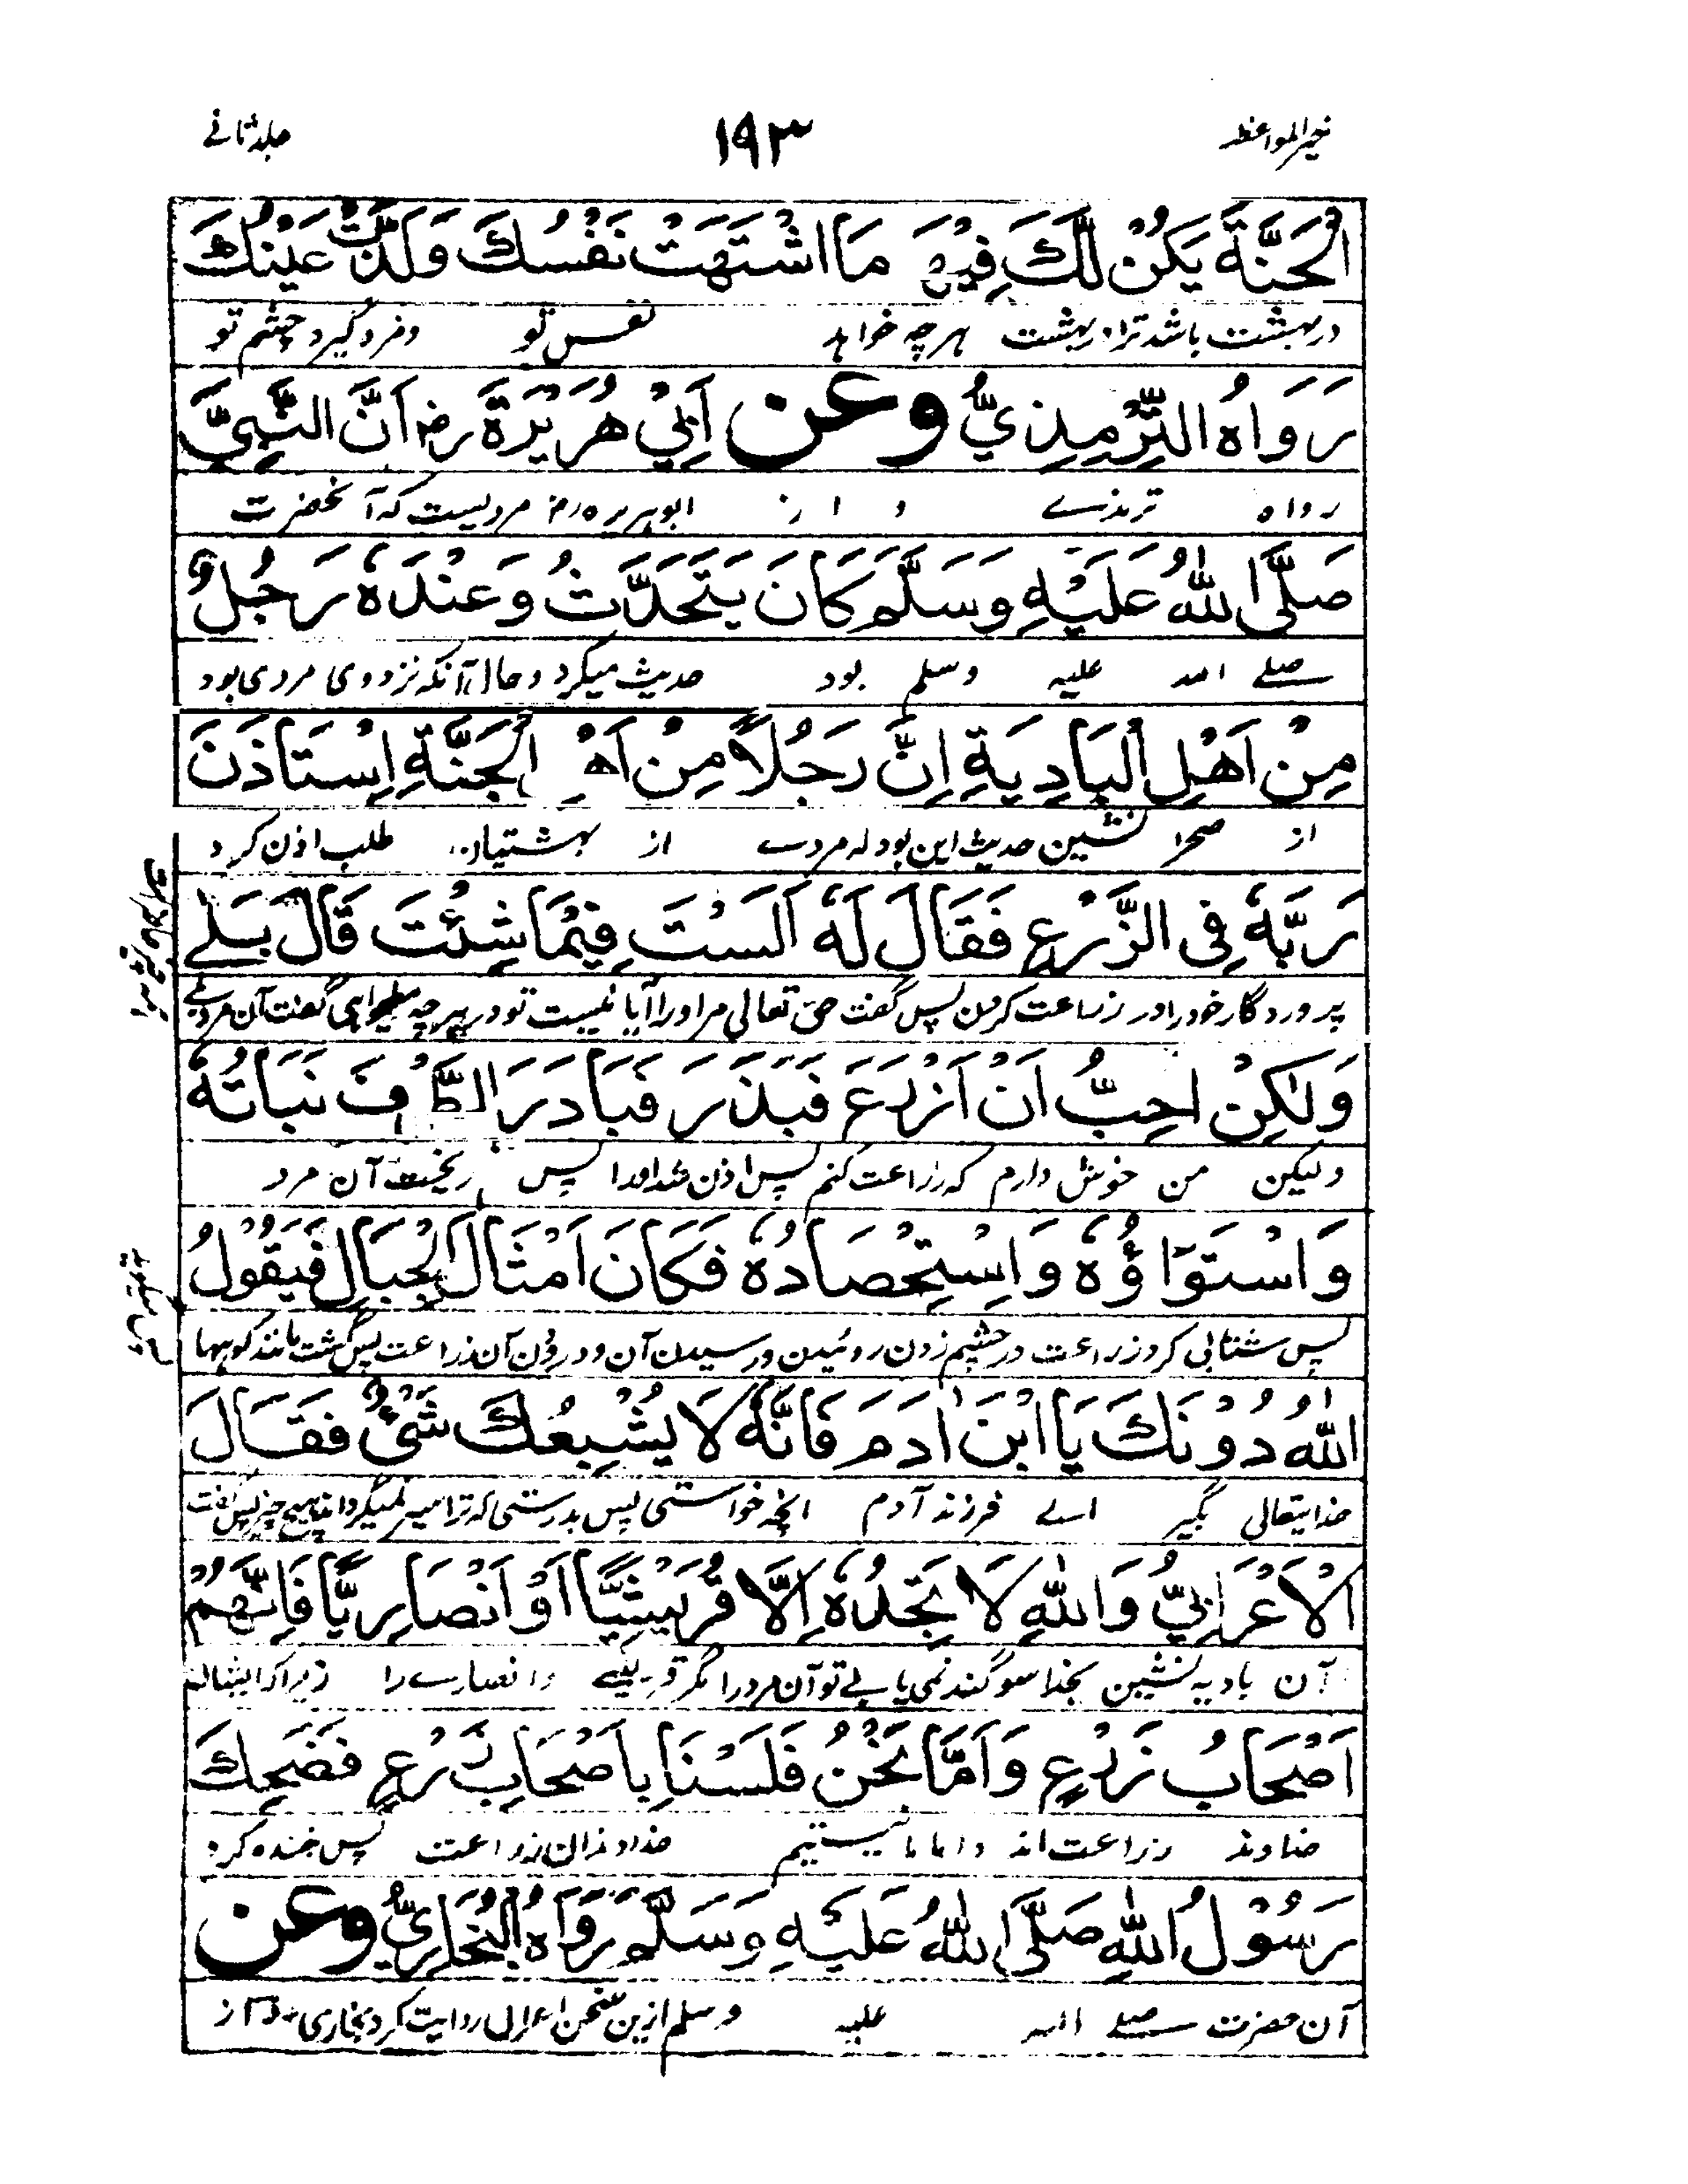 خیر المواعظ ۱۹۳ جلد ثانے
الْجَنَّةَ يَكُنْ لَّكَ فِيْهَا مَا اشْتَهَتْ نَفْسُكَ وَلَذَّتْ عَيْنُكَ
در بهشت باشد ترا در بهشت هر چه خواهد نفس تو و مزه گیرد چشم تو
رَوَاهُ التِّرْمِذِيُّ وعن اَبِيْ هُرَيْرَةَ رض اَنَّ النَّبِيَّ
رواه ترمذے و از ابوهریره رض مرویست که آنحضرت
صَلَّى اللّٰهُ عَلَيْهِ وَسَلَّمَ كَانَ يَتَحَدَّثُ وَعِنْدَهٗ رَجُلٌ
صلے الله علیه وسلم بود حدیث میکرد و حال آنکه نزد وی مردی بود
مِنْ اَهْلِ الْبَادِيَةِ اِنَّ رَجُلًا مِنْ اَهْلِ الْجَنَّةِ اِسْتَاذَنَ
از صحرا نشین حدیث این بود که مردے از بهشتیان طلب اذن کرد
رَبَّهٗ فِى الزَّرْعِ فَقَالَ لَهٗ اَلَسْتَ فِيْمَا شِئْتَ قَالَ بَلٰے
پروردگار خود را در زراعت کردن پس گفت حق تعالی مر او را آیا نیست تو در هر چه میخواهی گفت آن مرد بلے
وَلٰكِنْ اُحِبُّ اَنْ اَزْرَعَ فَبَذَرَ فَبَادَرَ الطَّرْفَ نَبَاتُهٗ
ولیکن من خوش دارم که زراعت کنم پس اذن شد او را پس ریخت آن مرد
وَاسْتَوَاؤُهٗ وَاسْتِحْصَادُهٗ فَكَانَ اَمْثَالَ الْجِبَالِ فَيَقُوْلُ
پس شتابی کرد زراعت در چشم زدن روئیدن و رسیدن آن و درودن آن زراعت پس گشت مانند کوهها
اللّٰهُ دُوْنَكَ يَا ابْنَ اٰدَمَ فَاِنَّهٗ لَا يُشْبِعُكَ شَيْءٌ فَقَالَ
خدایتعالی بگیر اے فرزند آدم آنچه خواستی پس بدرستی که ترا سیر نمیگرداند هیچ چیز پس گفت
الْاَعْرَابِيُّ وَاللّٰهِ لَا تَجِدُهٗ اِلَّا قُرَيْشِيًّا اَوْ اَنْصَارِيًّا فَاِنَّهُمْ
آن بادیه نشین بخدا سوگند نمی یابے تو آن مرد را مگر قریشے و انصارے را زیرا که ایشان
اَصْحَابُ زَرْعٍ وَاَمَّا نَحْنُ فَلَسْنَا بِاَصْحَابِ زَرْعٍ فَضَحِكَ
خداوند زراعت اند و اما ما نیستیم خداوندان زراعت پس خنده کرد
رَسُوْلُ اللّٰهِ صَلَّى اللّٰهُ عَلَيْهِ وَسَلَّمَ رَوَاهُ الْبُخَارِيُّ وعن
آن حضرت صلے الله علیه وسلم ازین سخن اعرابی روایت کرد بخاری و از